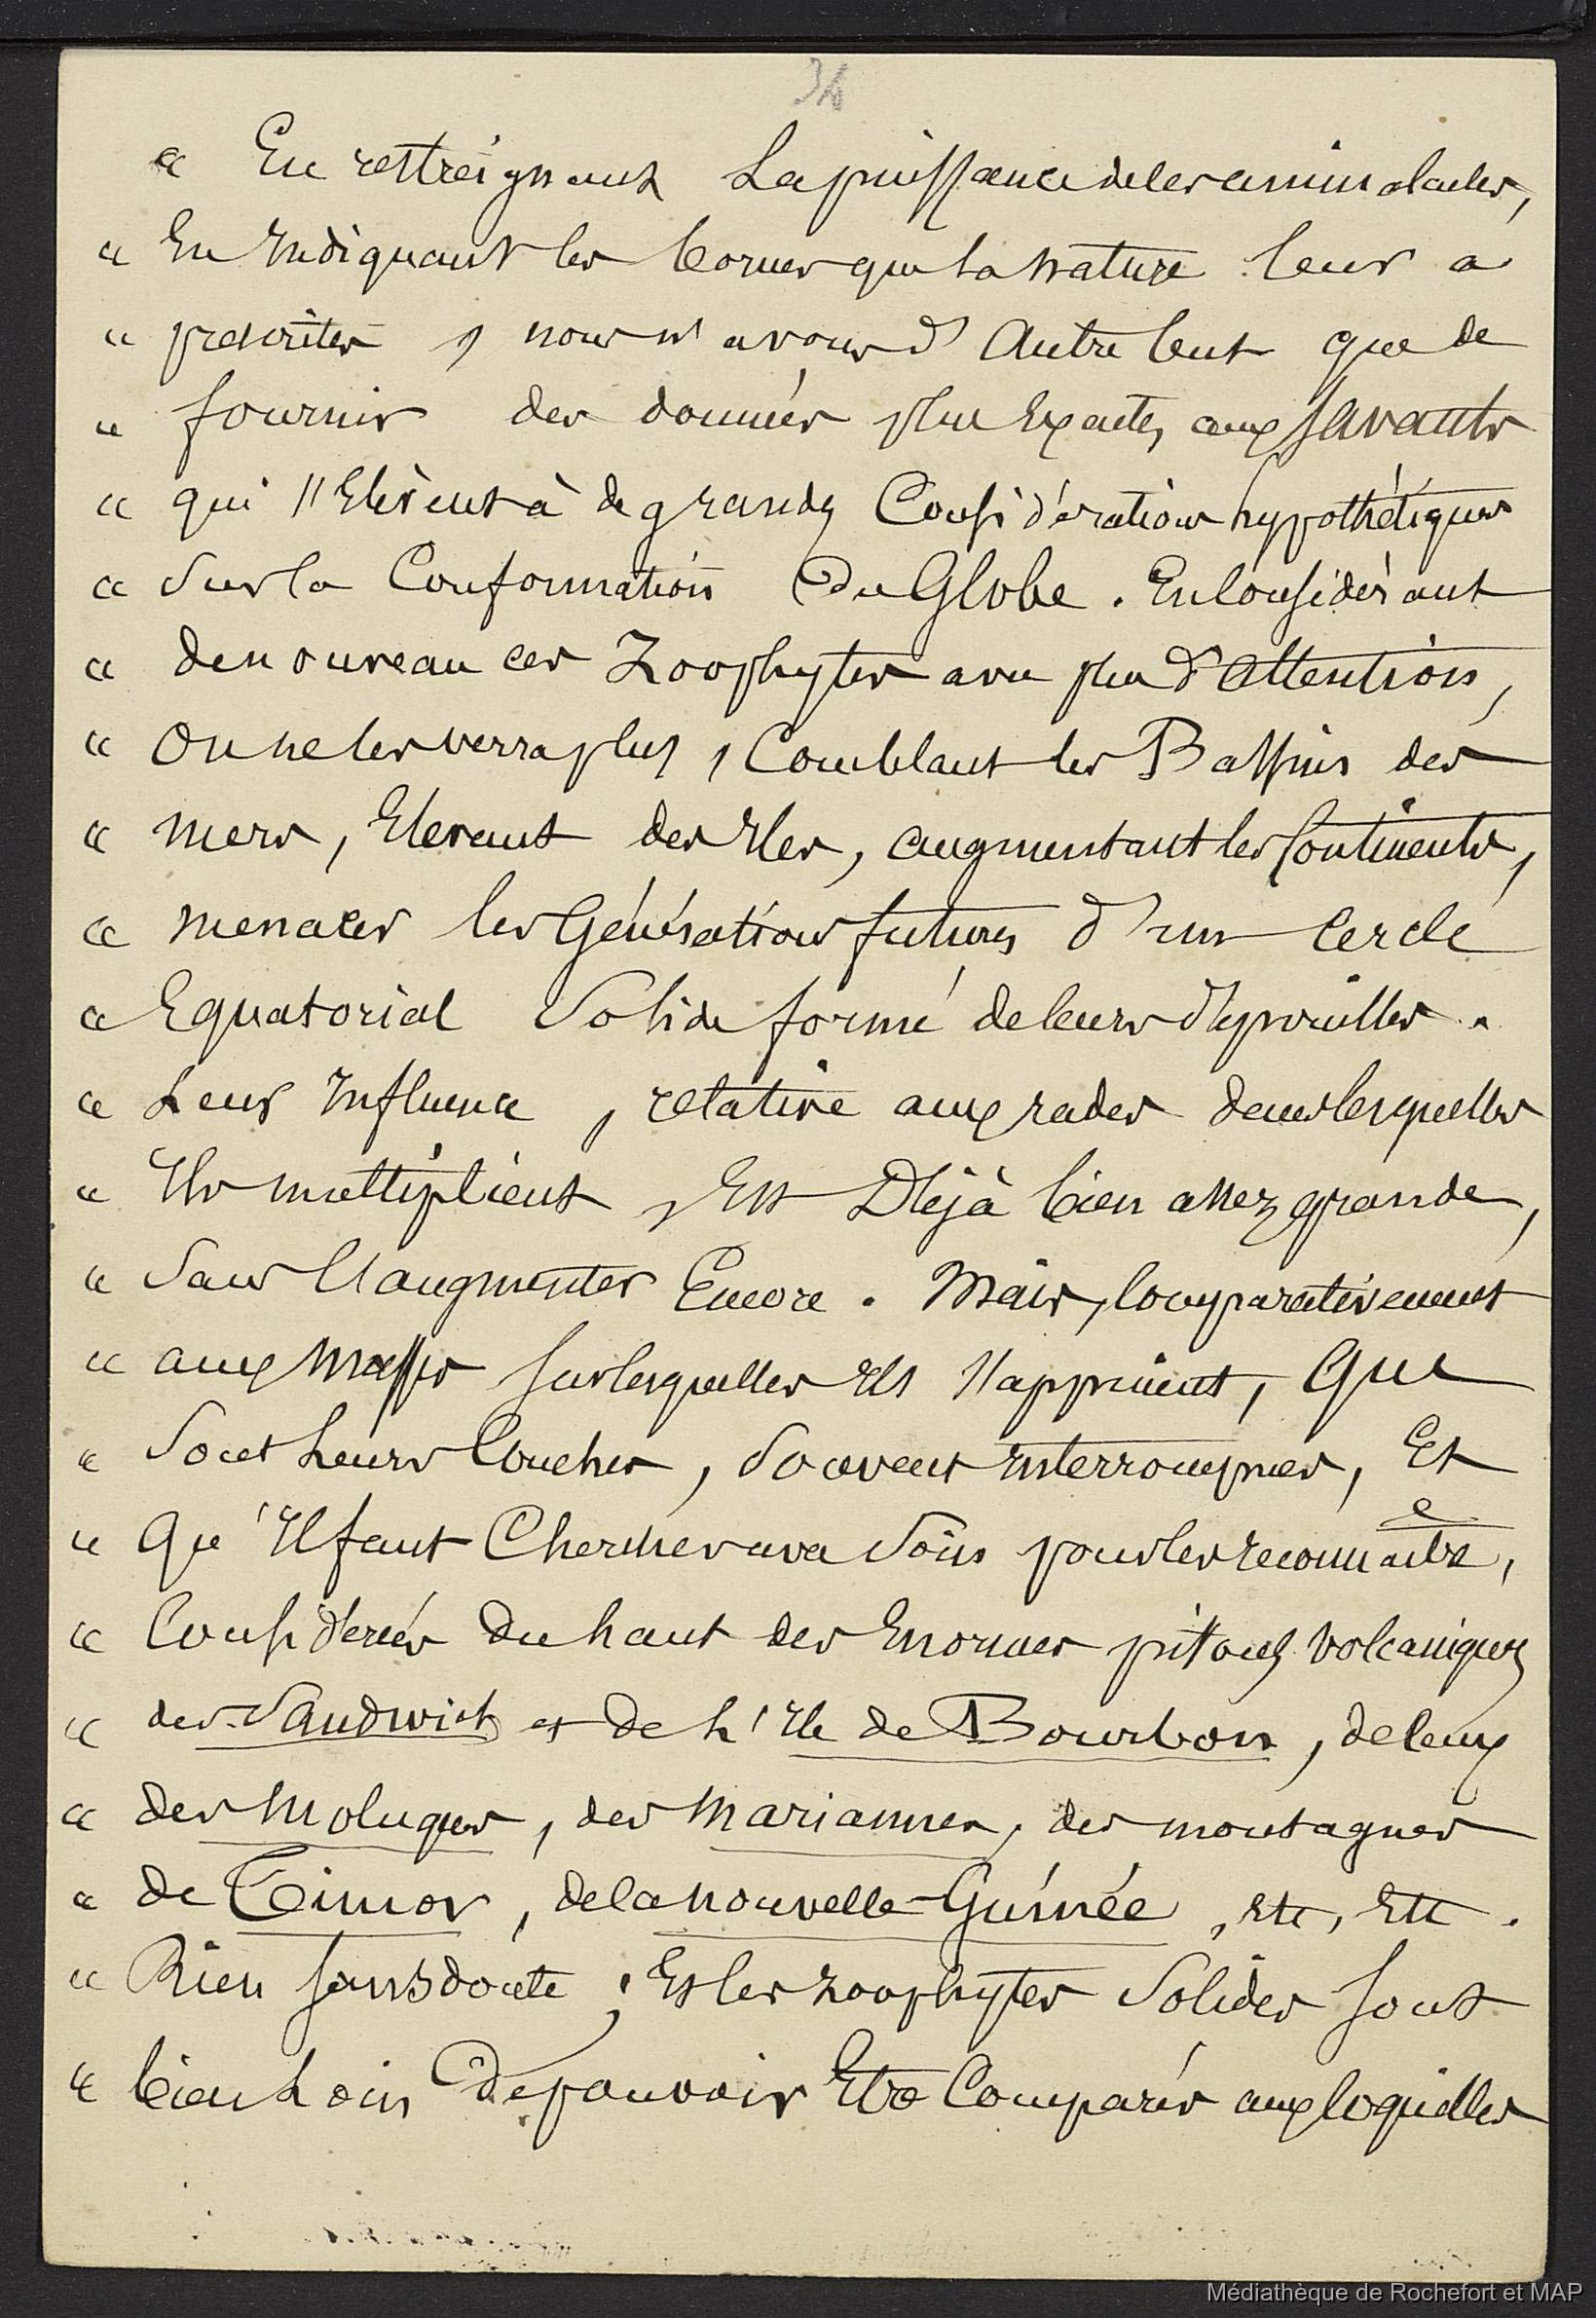 34
" En restreignant La puissance de ces animalcules,
" En Indiquant les bornes que la nature leur a
" prescrites, nous n'avons d'Autre but que de
" fournir des données plus Exactes aux savants
" qui s'Elèvent à de grandes Considérations hypothétiques
" Sur la Conformation Du Globe. En Considérant
" de nouveau ces Zoophytes avec plus d'attention,
" On ne les verra plus, Comblant les Bassins des
" mers, Elevant des Iles, augmentant les Continents,
" menacer les Générations futures d'un cercle
" Equatorial Solide formé de leurs dépouilles.
" Leur Influence, relative aux rades dans lesquelles
" Ils multiplient, Est Déjà bien assez grande,
" Sans l'augmenter Encore. Mais, Comparativement
" aux Masses sur lesquelles Ils s'appuient, Que
" Sont Leurs Couches, Souvent Interrompues, Et
" Qu'Il faut Chercher avec Soin pour les reconnaitre,
" Considérées Du haut des Enormes pitons volcaniques
" des Sandwich et de L'Ile de Bourbon, de ceux
" des Moluques, des Mariannes, des montagnes
" de Timor, de la nouvelle-Guinée, Etc, Etc.
" Rien sans doute ; Et les zoophytes Solides sont
" bien Loin De pouvoir Etre Comparés aux coquilles
Médiathèque de Rochefort et MAP